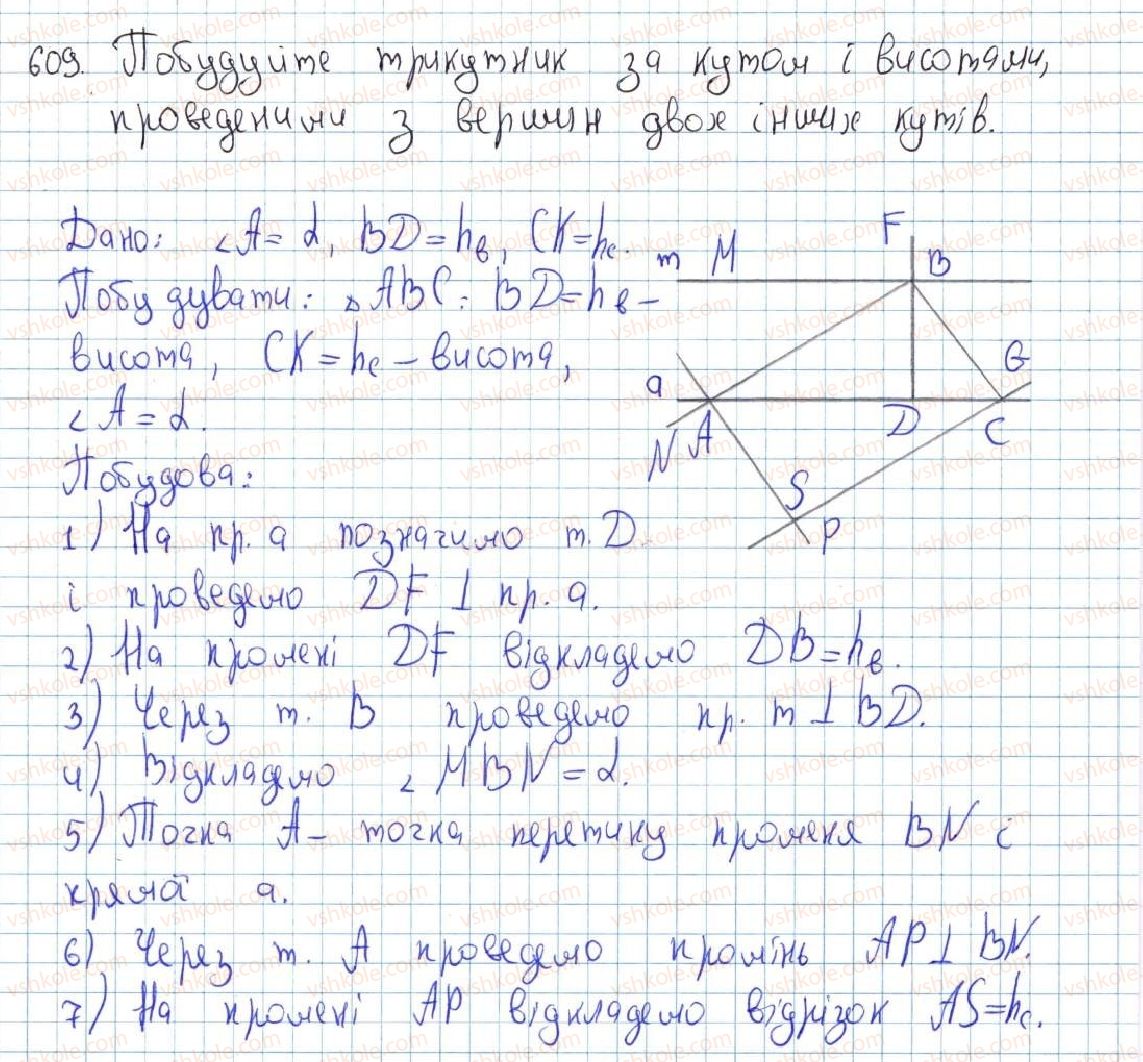 609. Побудуйте трикутник за кутом і висотами,
проведеними з вершин двох інших кутів.
Дано: ∠A = α, BD = hв, CK = hc.
Побудувати: △ABC: BD = hв –
висота, CK = hc – висота,
∠A = α.
m M F B
a N A D C G
S P
Побудова:
1) На пр. a позначимо т. D
і проведемо DF ⊥ пр. a.
2) На промені DF відкладемо DB = hв.
3) Через т. B проведемо пр. m ⊥ BD.
4) Відкладемо ∠MBN = α.
5) Точка A – точка перетину променя BN і
прямої a.
6) Через т. A проведемо промінь AP ⊥ BN.
7) На промені AP відкладемо відрізок AS = hc.
vshkole.com